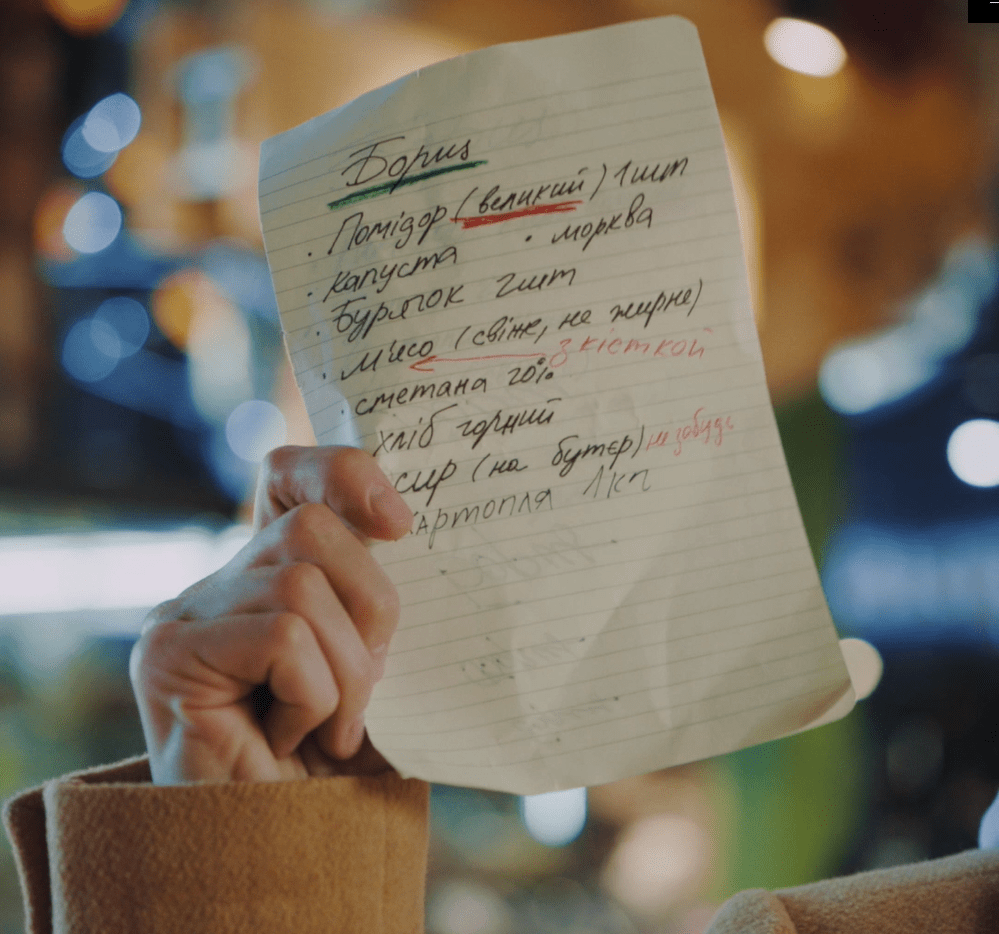 Борщ
· Помідор (великий) 1шт
· капуста · морква
· Бурячок 2шт
· м'ясо (свіже, не жирне)
з кісткой
· сметана 20%
хліб чорний
сир (на бутер) не забудь
картопля 1кг